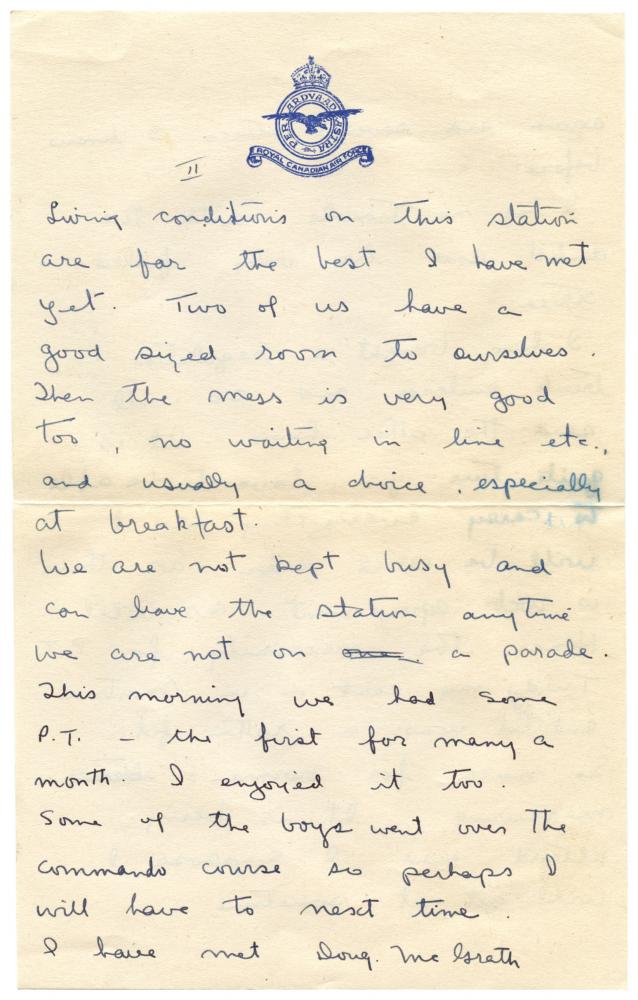 PER ARDVA AD ASTRA
ROYAL CANADIAN AIR FORCE
II
Living conditions on this station
are far the best I have met
yet. Two of us have a
good sized room to ourselves.
Then the mess is very good
too, no waiting in line etc.,
and usually a choice, especially
at breakfast.
We are not kept busy and
can leave the station anytime
we are not on a parade.
This morning we had some
P.T. – the first for many a
month. I enjoyed it too.
Some of the boys went over the
commando course so perhaps I
will have to next time.
I have met Doug. McGrath